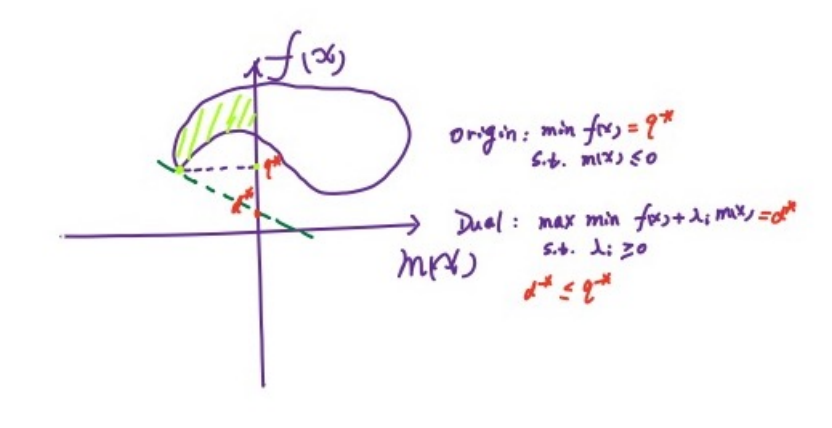 f(x)
origin: min f(x) = q*
s.t. m(x) ≤ 0
q*
d*
Dual: max min f(x) + λi m(x) = d*
s.t. λi ≥ 0
m(x)
d* ≤ q*